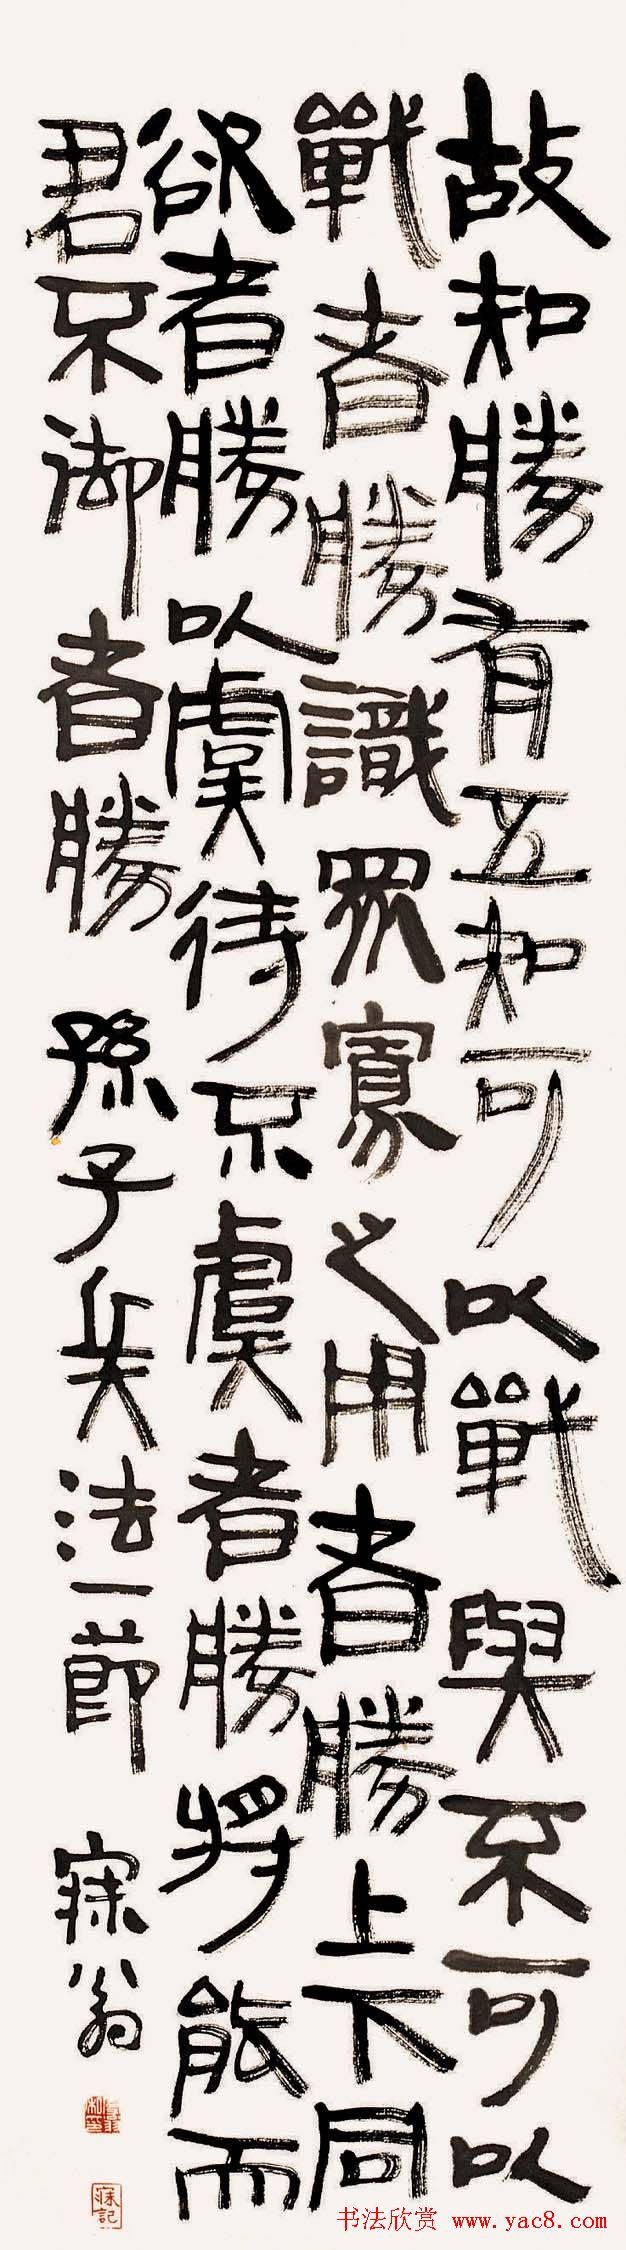 故知勝有五知可以戰與不可以
戰者勝識眾寡之用者勝上下同
欲者勝以虞待不虞者勝將能而
君不御者勝 孫子兵法一節 寐翁
寐記
书法欣赏 www.yac8.com